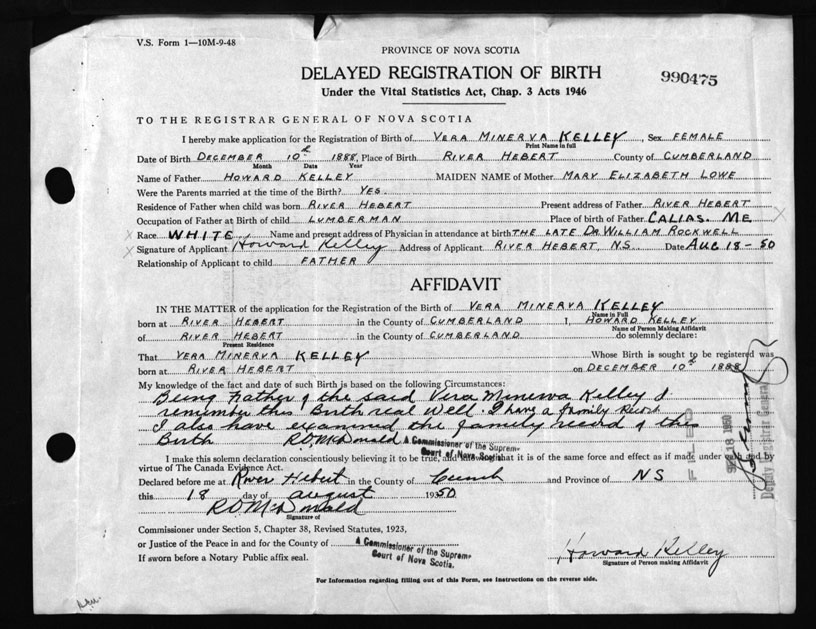 V.S. Form 1—10M-9-48
PROVINCE OF NOVA SCOTIA
DELAYED REGISTRATION OF BIRTH
990475
Under the Vital Statistics Act, Chap. 3 Acts 1946
TO THE REGISTRAR GENERAL OF NOVA SCOTIA
I hereby make application for the Registration of Birth of VERA MINERVA KELLEY, Sex FEMALE
Print Name in full
Date of Birth DECEMBER 10th 1888, Place of Birth RIVER HEBERT County of CUMBERLAND
Month Date Year
Name of Father HOWARD KELLEY MAIDEN NAME of Mother MARY ELIZABETH LOWE
Were the Parents married at the time of the Birth? YES.
Residence of Father when child was born RIVER HEBERT Present address of Father RIVER HEBERT
Occupation of Father at Birth of child LUMBERMAN Place of birth of Father CALIAS. ME X
X Race WHITE Name and present address of Physician in attendance at birth THE LATE DR WILLIAM ROCKWELL
X Signature of Applicant Howard Kelley Address of Applicant RIVER HEBERT, N.S. Date AUG 18-50
Relationship of Applicant to child FATHER
AFFIDAVIT
IN THE MATTER of the application for the Registration of the Birth of VERA MINERVA KELLEY
Name in Full
born at RIVER HEBERT in the County of CUMBERLAND I, HOWARD KELLEY
Name of Person Making Affidavit
of RIVER HEBERT in the County of CUMBERLAND do solemnly declare:
Present Residence
That VERA MINERVA KELLEY Whose Birth is sought to be registered was
born at RIVER HEBERT on DECEMBER 10th 1888
My knowledge of the fact and date of such Birth is based on the following Circumstances:
Being Father of the said Vera Minerva Kelley I
remember this Birth real well. I have a family Record
I also have examined the family record of this
Birth R D McDonald A Commissioner of the Supreme
Court of Nova Scotia
I make this solemn declaration conscientiously believing it to be true, and knowing that it is of the same force and effect as if made under oath and by
virtue of The Canada Evidence Act.
Declared before me at River Hebert in the County of Cumb and Province of NS
this 18 day of august 1950
R D McDonald
Signature of
Commissioner under Section 5, Chapter 38, Revised Statutes, 1923,
or Justice of the Peace in and for the County of
A Commissioner of the Supreme
Court of Nova Scotia.
If sworn before a Notary Public affix seal.
Howard Kelley
Signature of Person making Affidavit
For Information regarding filling out of this Form, see Instructions on the reverse side.
FILED
SEP 18 1950
Deputy Registrar General